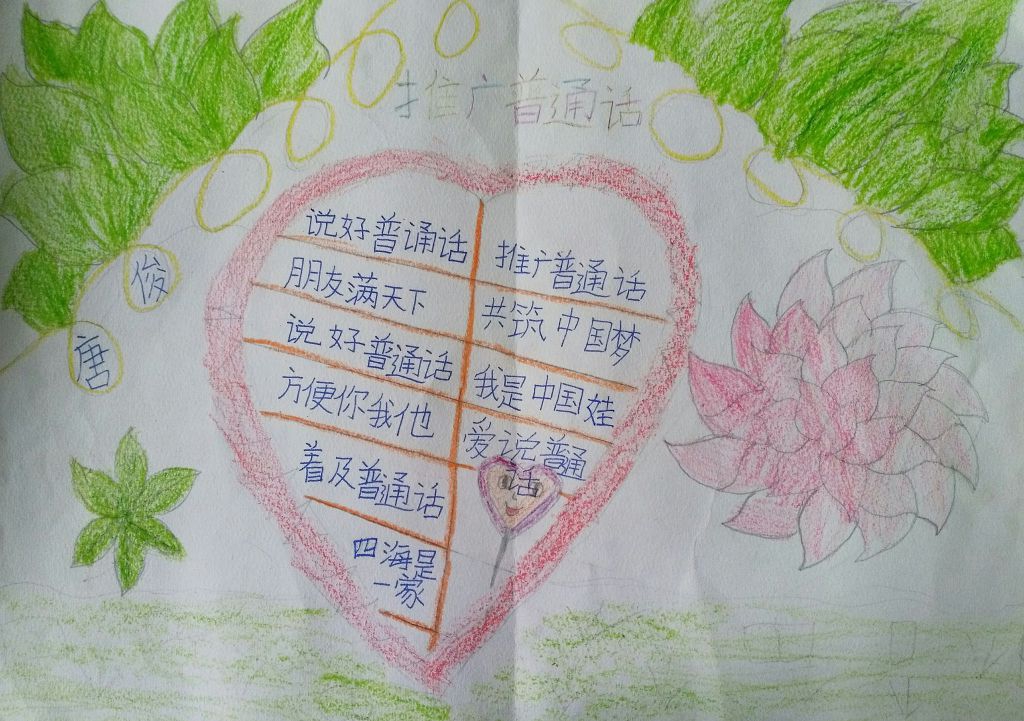 推广普通话
唐俊
说好普诵话
朋友满天下
说好普通话
方便你我他
着及普通话
四海是
一家
推广普通话
共筑中国梦
我是中国娃
爱说普通
话